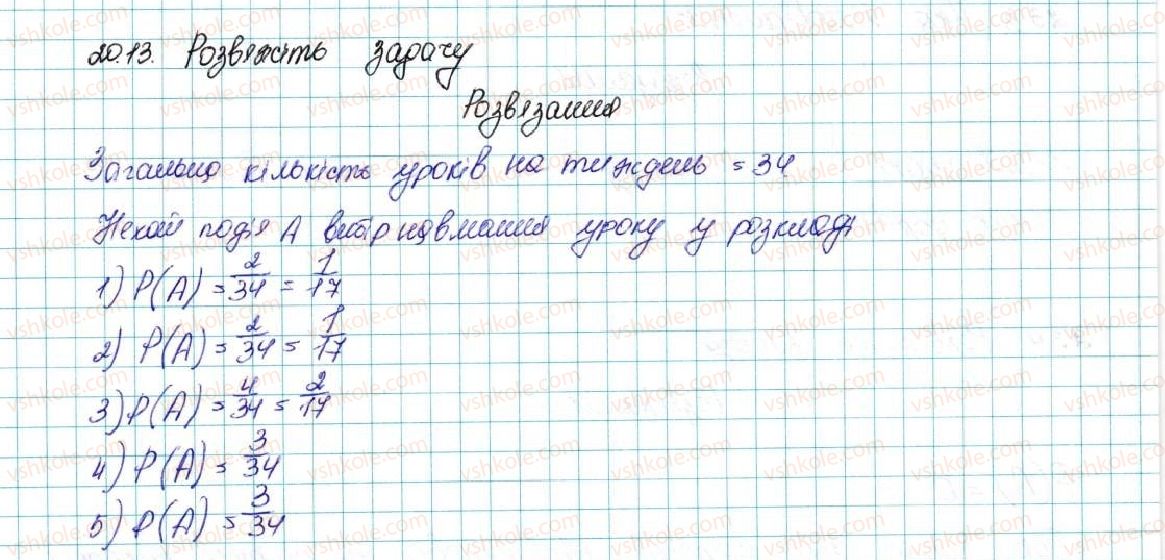 20.13. Розвяжіть задачу
Розвязання
Загальна кількість уроків на тиждень = 34
Нехай подія А вибір навмання уроку у розкладі
1) P(A) = 2/34 = 1/17
2) P(A) = 2/34 = 1/17
3) P(A) = 4/34 = 2/17
4) P(A) = 3/34
5) P(A) = 3/34